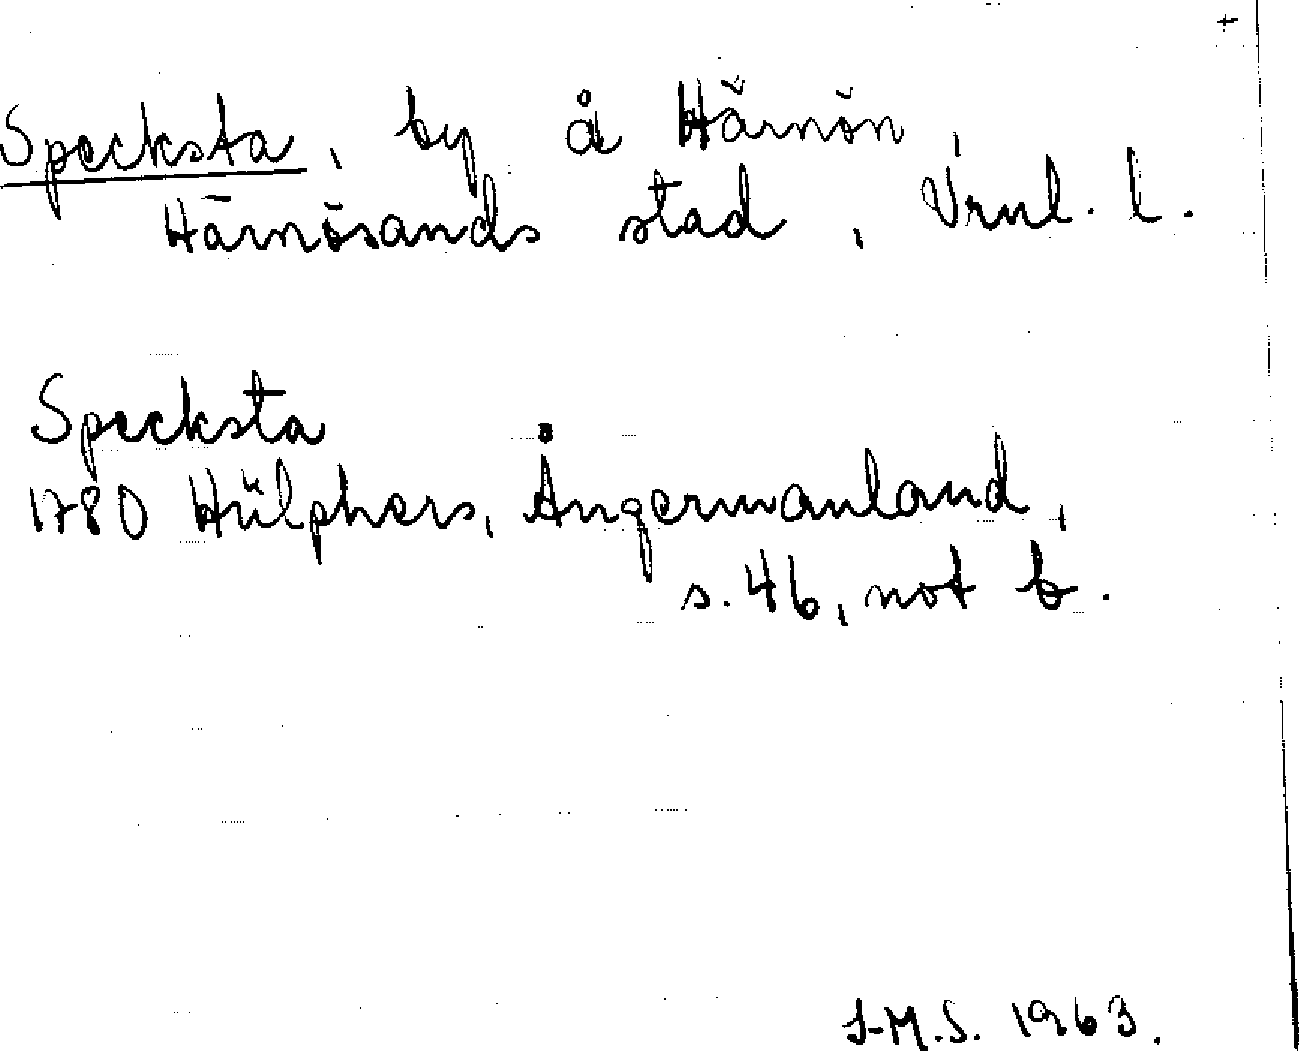 Specksta, by å Härnön,
Härnösands stad, Vrnl. l.
Specksta
1780 Hülphers, Ångermanland,
s. 46, not b.
J-M.S. 1963.